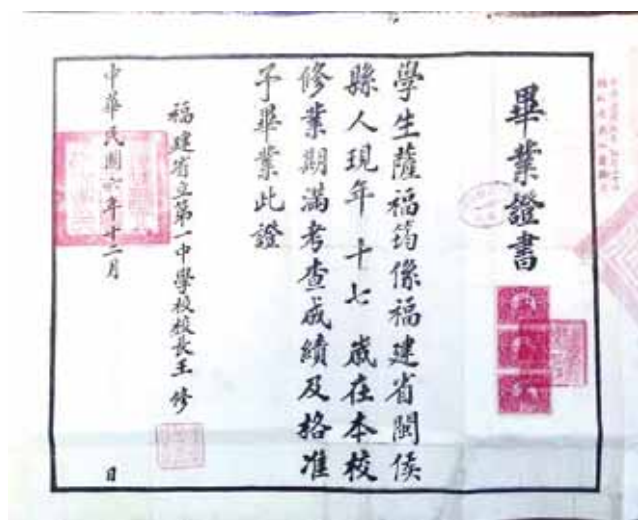 畢業證書
學生薩福筠係福建省閩侯
縣人現年十七歲在本校
修業期滿考查成績及格准
予畢業此證
福建省立第一中學校校長王修
中華民國六年十二月 日